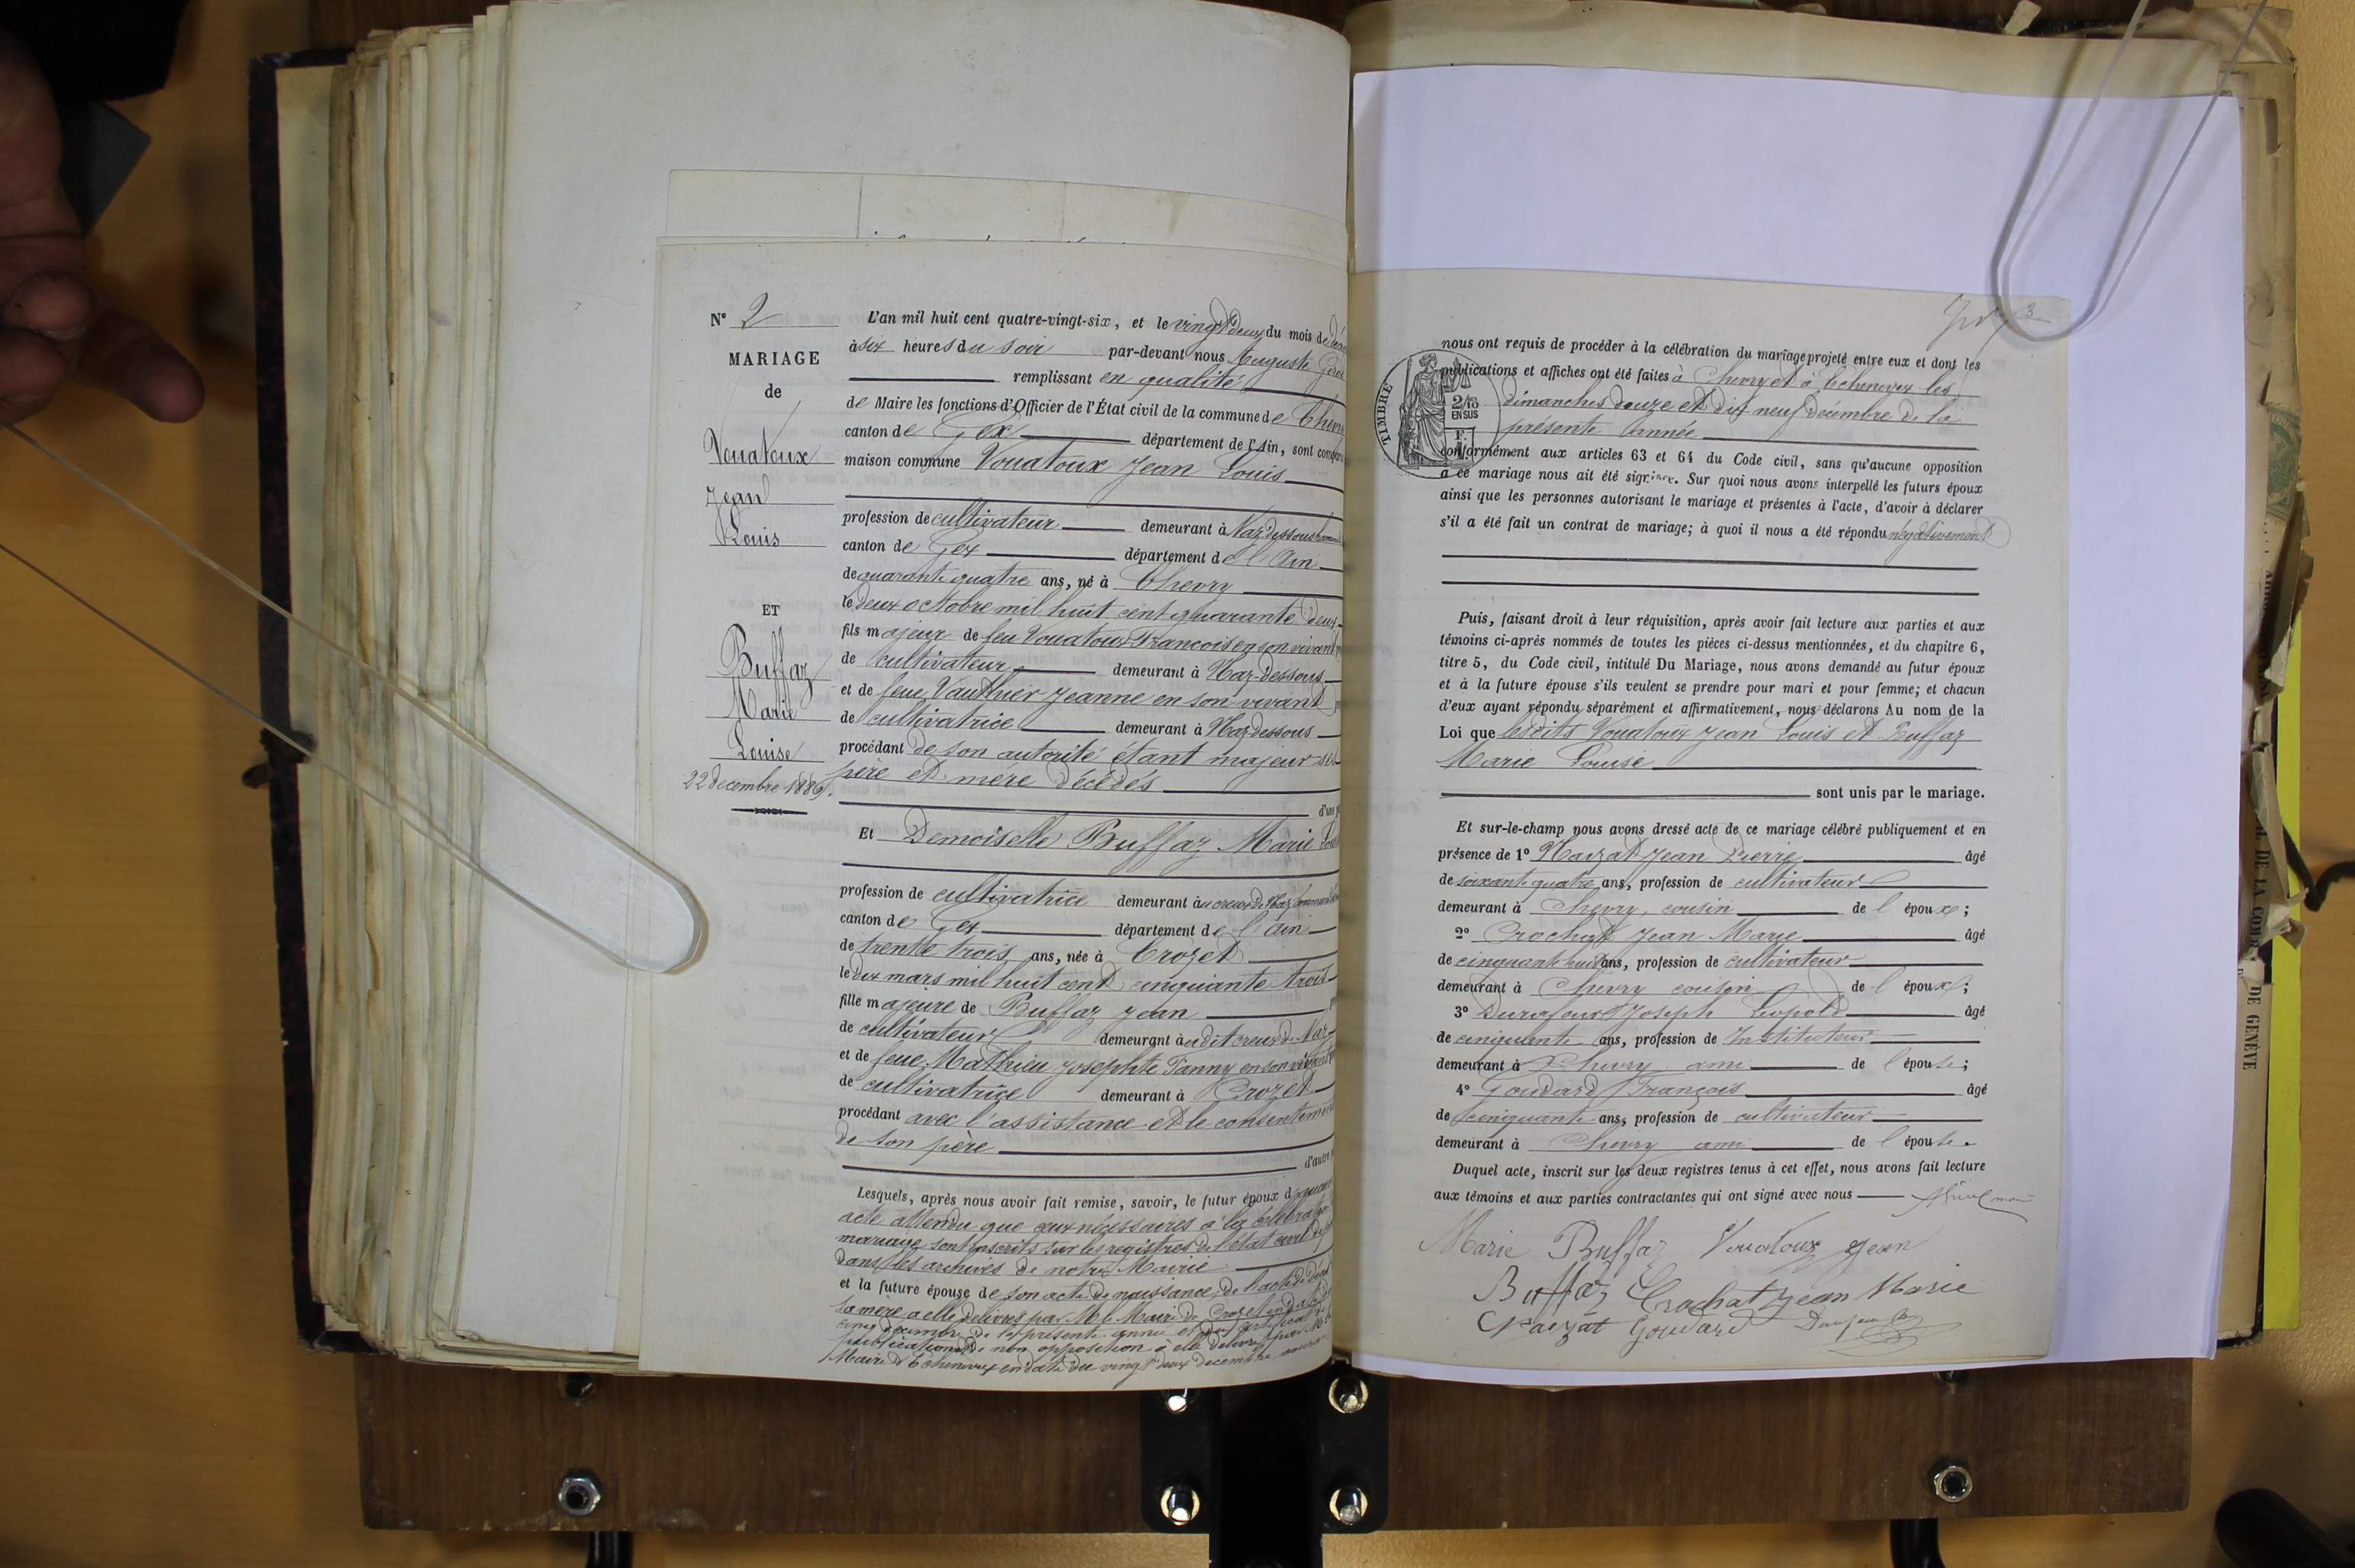 N° 2
MARIAGE
de
Vouatoux
Jean
Louis
ET
Buffaz
Marie
Louise
22 decembre 1886.
L'an mil huit cent quatre-vingt-six, et le vingt deux du mois de
à six heures du soir par-devant nous Auguste
remplissant en qualité
de Maire les fonctions d'Officier de l'État civil de la commune de Chev
canton de Gex département de l'Ain, sont comp
maison commune Vouatoux Jean Louis
profession de cultivateur demeurant à Naz dessous
canton de Gex département de l'Ain
de quarante quatre ans, né à Chevry
le deux octobre mil huit cent quarante deux
fils majeur de feu Vouatoux Francois en son vivant
de cultivateur demeurant à Naz-dessous
et de feue Vauthier Jeanne en son vivant
de cultivatrice demeurant à Naz dessous
procédant de son autorité étant majeur ses
père et mère décédés
d'une
Et Demoiselle Buffaz Marie
profession de cultivatrice demeurant au creux de Naz
canton de Gex département de l'Ain
de trente trois ans, née à Crozet
le dix mars mil huit cent cinquante trois
fille majeure de Buffaz Jean
de cultivateur demeurant au dit creux de Naz
et de feue Mathieu Josephte Fanny en son vivant
de cultivatrice demeurant à Crozet
procédant avec l'assistance et le consentement
de son père
d'autre
Lesquels, après nous avoir fait remise, savoir, le futur époux d'aucun
acte attendu que ceux nécessaires à la célébration
mariage sont inscrits sur les registres de l'état civil
dans les archives de notre Mairie
et la future épouse de son acte de naissance, de l'acte de décès
sa mère a elle délivrés par Mr le Maire de Crozet en date
cinq décembre de la présente année et du certificat de
publication et de non opposition à elle délivré par Mr
Maire d'Echenevex en date du vingt deux decembre
3
nous ont requis de procéder à la célébration du mariage projeté entre eux et dont les
publications et affiches ont été faites à Chevry et à Echenevex les
dimanches douze et dix neuf décembre de la
présente année
TIMBRE
2/10
EN SUS
conformément aux articles 63 et 64 du Code civil, sans qu'aucune opposition
à ce mariage nous ait été signifiée. Sur quoi nous avons interpellé les futurs époux
ainsi que les personnes autorisant le mariage et présentes à l'acte, d'avoir à déclarer
s'il a été fait un contrat de mariage; à quoi il nous a été répondu négativement
Puis, faisant droit à leur réquisition, après avoir fait lecture aux parties et aux
témoins ci-après nommés de toutes les pièces ci-dessus mentionnées, et du chapitre 6,
titre 5, du Code civil, intitulé Du Mariage, nous avons demandé au futur époux
et à la future épouse s'ils veulent se prendre pour mari et pour femme; et chacun
d'eux ayant répondu séparément et affirmativement, nous déclarons Au nom de la
Loi que lesdits Vouatoux Jean Louis et Buffaz
Marie Louise
sont unis par le mariage.
Et sur-le-champ nous avons dressé acte de ce mariage célébré publiquement et en
présence de 1° Nayzat Jean Pierre âgé
de soixante quatre ans, profession de cultivateur
demeurant à Chevry, cousin de l'époux;
2° Crochat Jean Marie âgé
de cinquante huit ans, profession de cultivateur
demeurant à Chevry cousin de l'époux;
3° Joseph Léopold âgé
de cinquante ans, profession de Instituteur
demeurant à Chevry ami de l'épouse;
4° Goudard François âgé
de cinquante ans, profession de cultivateur
demeurant à Chevry ami de l'épouse.
Duquel acte, inscrit sur les deux registres tenus à cet effet, nous avons fait lecture
aux témoins et aux parties contractantes qui ont signé avec nous
Marie Buffaz Vouatoux Jean
Buffaz Crachat Jean Marie
Goudard
DE LA COUR DE GENÈVE